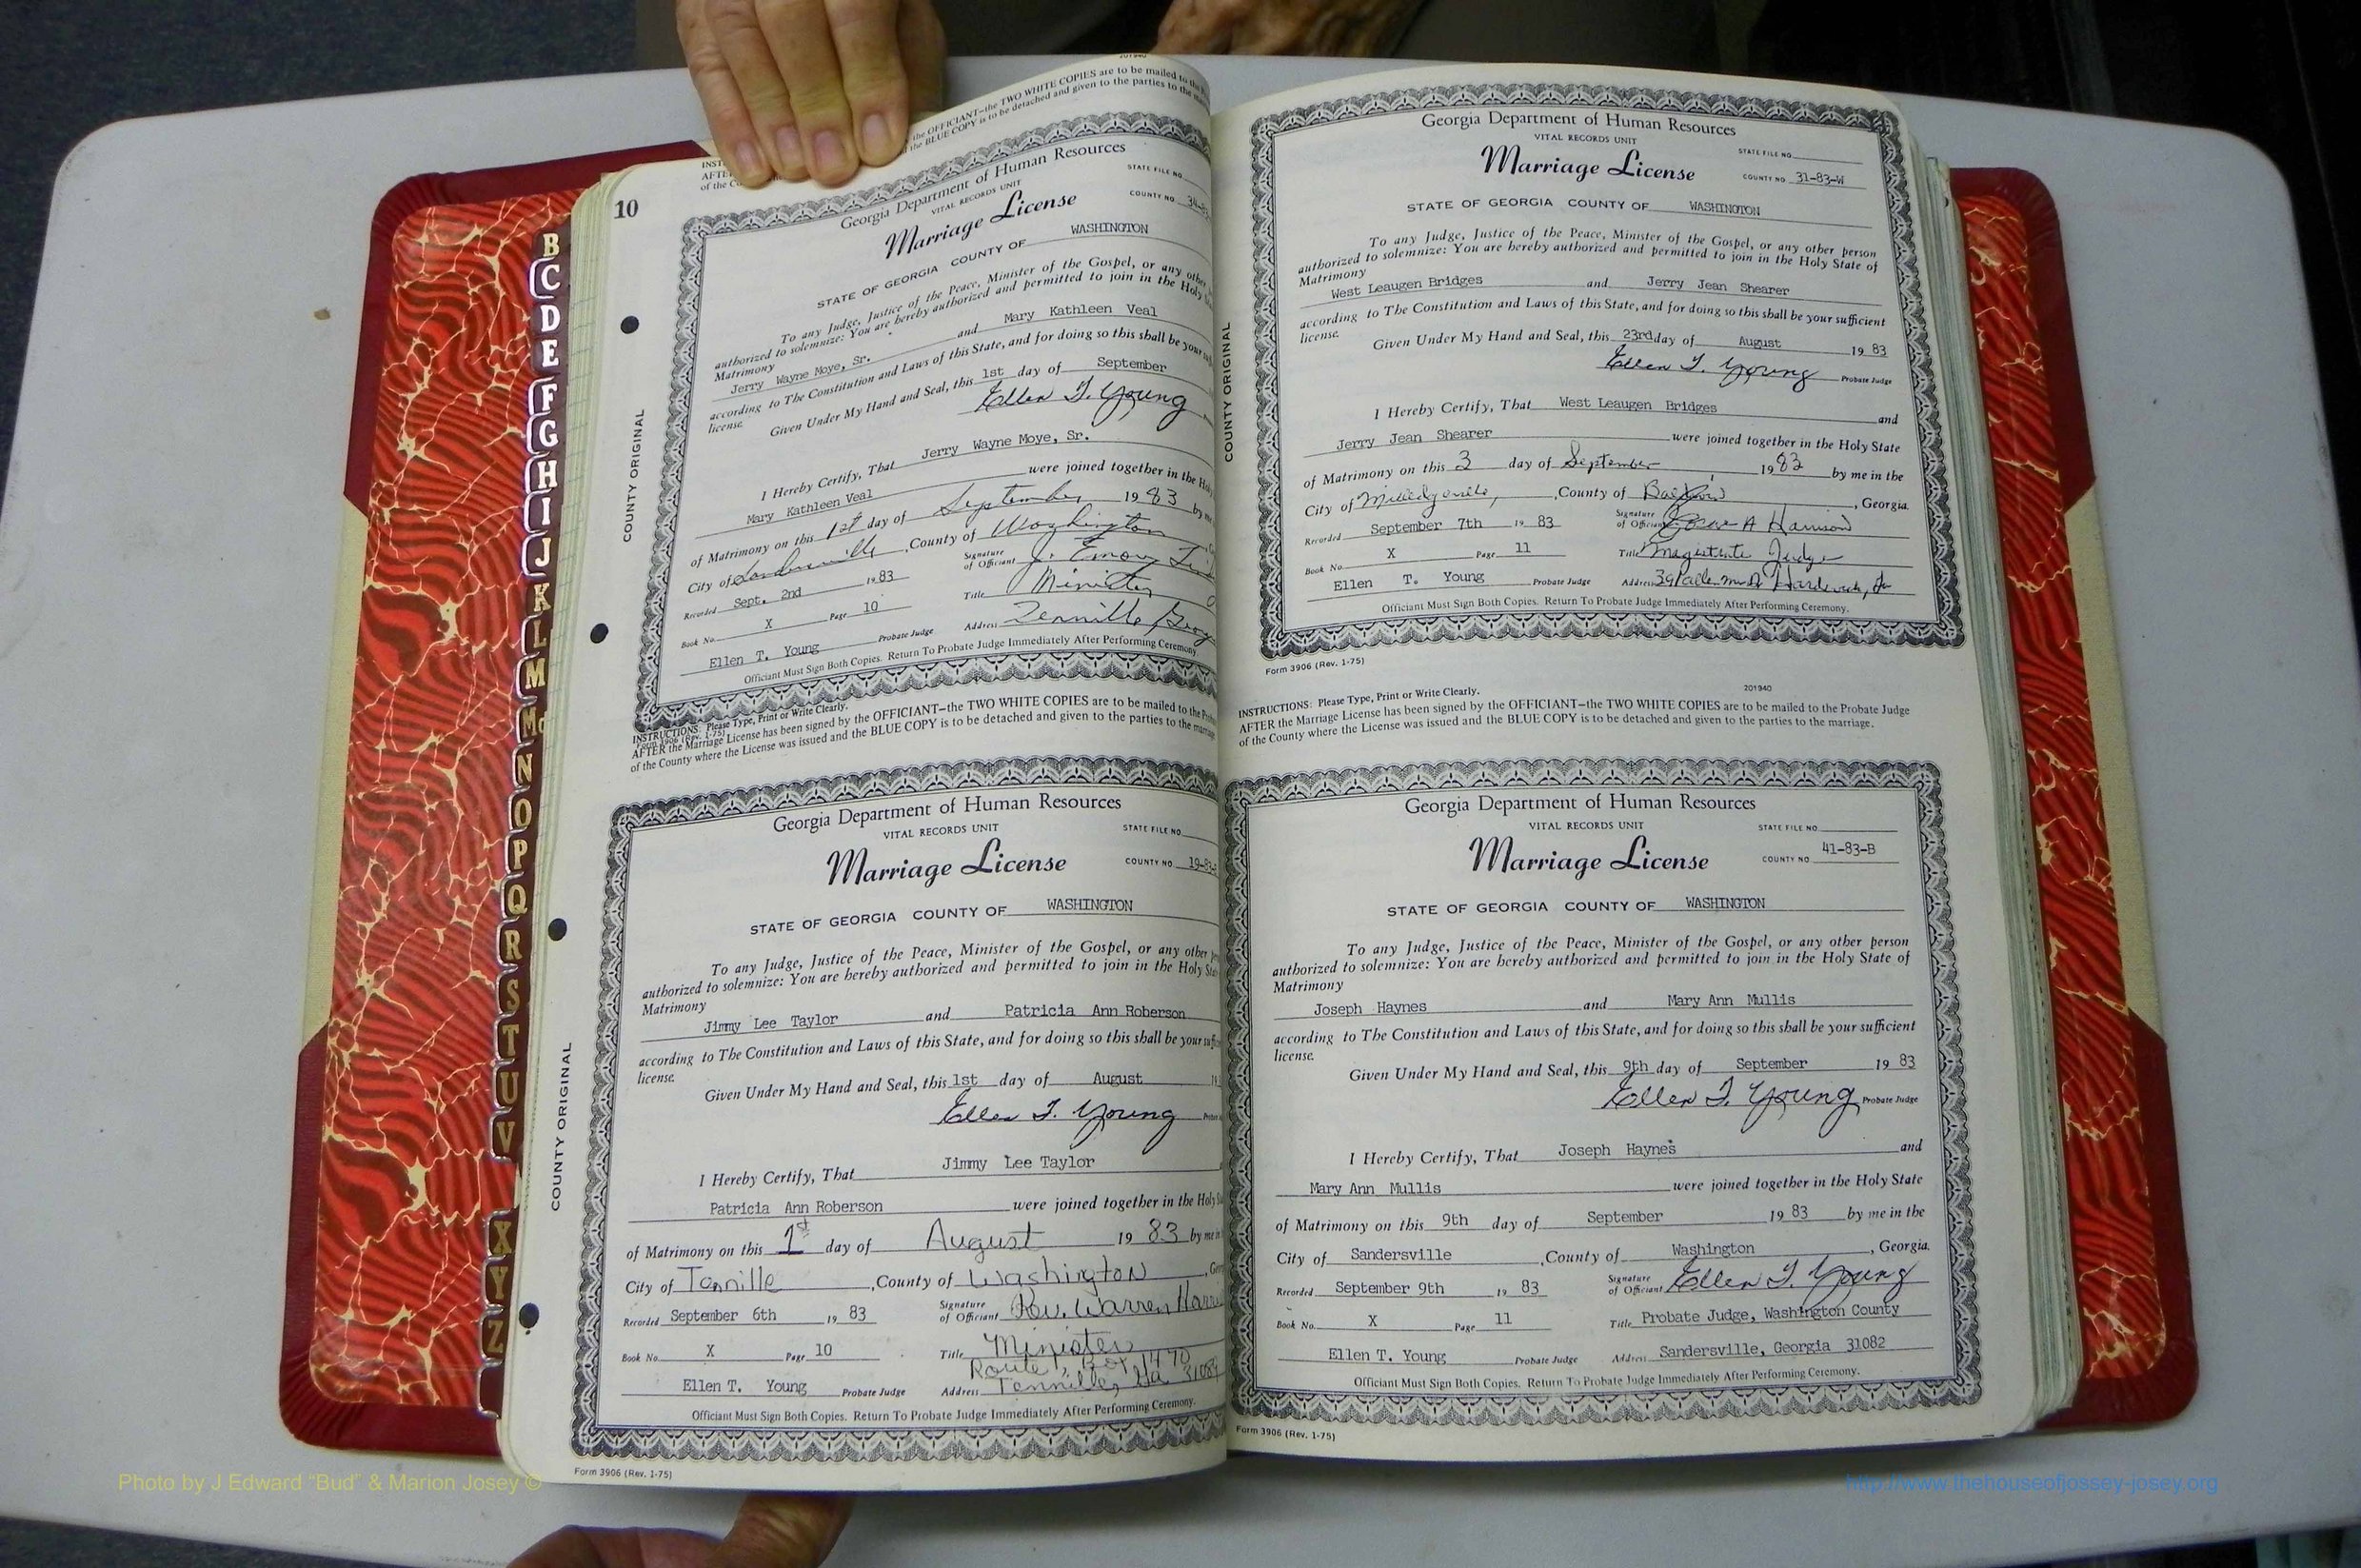 201940
the OFFICIANT—the TWO WHITE COPIES are to be mailed to the
the BLUE COPY is to be detached and given to the parties to the
INST
AFTE
of the Co
10
Georgia Department of Human Resources
VITAL RECORDS UNIT
STATE FILE NO.
Marriage License
COUNTY NO.
STATE OF GEORGIA COUNTY OF WASHINGTON
To any Judge, Justice of the Peace, Minister of the Gospel, or any other
authorized to solemnize: You are hereby authorized and permitted to join in the Holy
Matrimony
Jerry Wayne Moye, Sr. and Mary Kathleen Veal
according to The Constitution and Laws of this State, and for doing so this shall be your
license.
Given Under My Hand and Seal, this 1st day of September
Ellen T. Young
I Hereby Certify, That Jerry Wayne Moye, Sr.
Mary Kathleen Veal were joined together in the
of Matrimony on this 1st day of September 1983 by
City of Sandersville, County of Washington
Recorded Sept. 2nd 1983 Signature of Officiant J. Emory
Book No. X Page 10 Title Minister
Ellen T. Young Probate Judge Address Tennille
Officiant Must Sign Both Copies. Return To Probate Judge Immediately After Performing Ceremony.
COUNTY ORIGINAL
Form 3906 (Rev. 1-75)
INSTRUCTIONS: Please Type, Print or Write Clearly.
AFTER the Marriage License has been signed by the OFFICIANT—the TWO WHITE COPIES are to be mailed to the
of the County where the License was issued and the BLUE COPY is to be detached and given to the parties to the
Georgia Department of Human Resources
VITAL RECORDS UNIT
STATE FILE NO.
Marriage License
COUNTY NO.
STATE OF GEORGIA COUNTY OF WASHINGTON
To any Judge, Justice of the Peace, Minister of the Gospel, or any other
authorized to solemnize: You are hereby authorized and permitted to join in the Holy
Matrimony
Jimmy Lee Taylor and Patricia Ann Roberson
according to The Constitution and Laws of this State, and for doing so this shall be your
license.
Given Under My Hand and Seal, this 1st day of August
Ellen T. Young
I Hereby Certify, That Jimmy Lee Taylor
Patricia Ann Roberson were joined together in the Holy
of Matrimony on this 1st day of August 1983 by me
City of Tennille, County of Washington
Recorded September 6th 1983 Signature of Officiant Rev. Warren
Book No. X Page 10 Title Minister
Route 1, Box 1470
Ellen T. Young Probate Judge Address Tennille, Ga
Officiant Must Sign Both Copies. Return To Probate Judge Immediately After Performing Ceremony.
COUNTY ORIGINAL
Form 3906 (Rev. 1-75)
Georgia Department of Human Resources
VITAL RECORDS UNIT
STATE FILE NO.
Marriage License
COUNTY NO. 31-83-W
STATE OF GEORGIA COUNTY OF WASHINGTON
To any Judge, Justice of the Peace, Minister of the Gospel, or any other person
authorized to solemnize: You are hereby authorized and permitted to join in the Holy State of
Matrimony
West Leaugen Bridges and Jerry Jean Shearer
according to The Constitution and Laws of this State, and for doing so this shall be your sufficient
license.
Given Under My Hand and Seal, this 23rd day of August 1983
Ellen T. Young Probate Judge
I Hereby Certify, That West Leaugen Bridges and
Jerry Jean Shearer were joined together in the Holy State
of Matrimony on this 3 day of September 1983 by me in the
City of Milledgeville, County of Baldwin, Georgia.
Recorded September 7th 1983 Signature of Officiant A Harrison
Book No. X Page 11 Title Magistrate Judge
Ellen T. Young Probate Judge Address
Officiant Must Sign Both Copies. Return To Probate Judge Immediately After Performing Ceremony.
COUNTY ORIGINAL
Form 3906 (Rev. 1-75)
201940
INSTRUCTIONS: Please Type, Print or Write Clearly.
AFTER the Marriage License has been signed by the OFFICIANT—the TWO WHITE COPIES are to be mailed to the Probate Judge
of the County where the License was issued and the BLUE COPY is to be detached and given to the parties to the marriage.
Georgia Department of Human Resources
VITAL RECORDS UNIT
STATE FILE NO.
Marriage License
COUNTY NO. 41-83-B
STATE OF GEORGIA COUNTY OF WASHINGTON
To any Judge, Justice of the Peace, Minister of the Gospel, or any other person
authorized to solemnize: You are hereby authorized and permitted to join in the Holy State of
Matrimony
Joseph Haynes and Mary Ann Mullis
according to The Constitution and Laws of this State, and for doing so this shall be your sufficient
license.
Given Under My Hand and Seal, this 9th day of September 1983
Ellen T. Young Probate Judge
I Hereby Certify, That Joseph Haynes and
Mary Ann Mullis were joined together in the Holy State
of Matrimony on this 9th day of September 1983 by me in the
City of Sandersville, County of Washington, Georgia.
Recorded September 9th 1983 Signature of Officiant Ellen T. Young
Book No. X Page 11 Title Probate Judge, Washington County
Ellen T. Young Probate Judge Address Sandersville, Georgia 31082
Officiant Must Sign Both Copies. Return To Probate Judge Immediately After Performing Ceremony.
Form 3906 (Rev. 1-75)
B
C
D
E
F
G
H
I
J
K
L
M
Mc
N
O
P
Q
R
S
T
U
V
X
Y
Z
Photo by J Edward “Bud” & Marion Josey ©
http://www.thehouseofjossey-josey.org